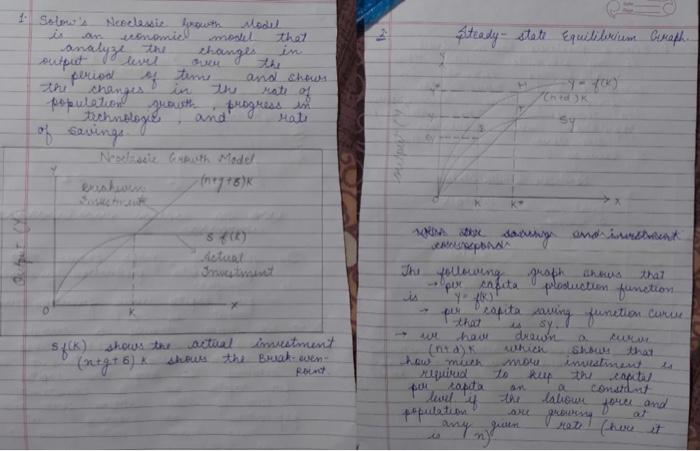 1. Solow's Neoclassic Growth Model
is an economic model that
analyze the changes in
output level over the
period of time and shows
the changes in the rate of
population growth, progress in
technologies, and rate
of savings.
Neoclassic Growth Model
Y
Breakeven
Investment
(n+g+δ)K
s f(k)
Actual
Investment
Output (Y)
O
K
X
s f(K) shows the actual investment
(n+g+δ) K shows the Break-even-
point.
2.
Steady-state Equilibrium Graph.
Y
Y*
M
y = f(K)
(n+d)K
sy
O
K
K*
X
saving and investment
The following graph shows that
→ per capita production function
is y = f(K)
→ per capita saving function curve
that is sy.
→ we have drawn a curve
(n+d)K which shows that
how much more investment is
required to keep the capital
per capita on a constant
level if the labour force and
population are growing at
any given rate (here it
is n)